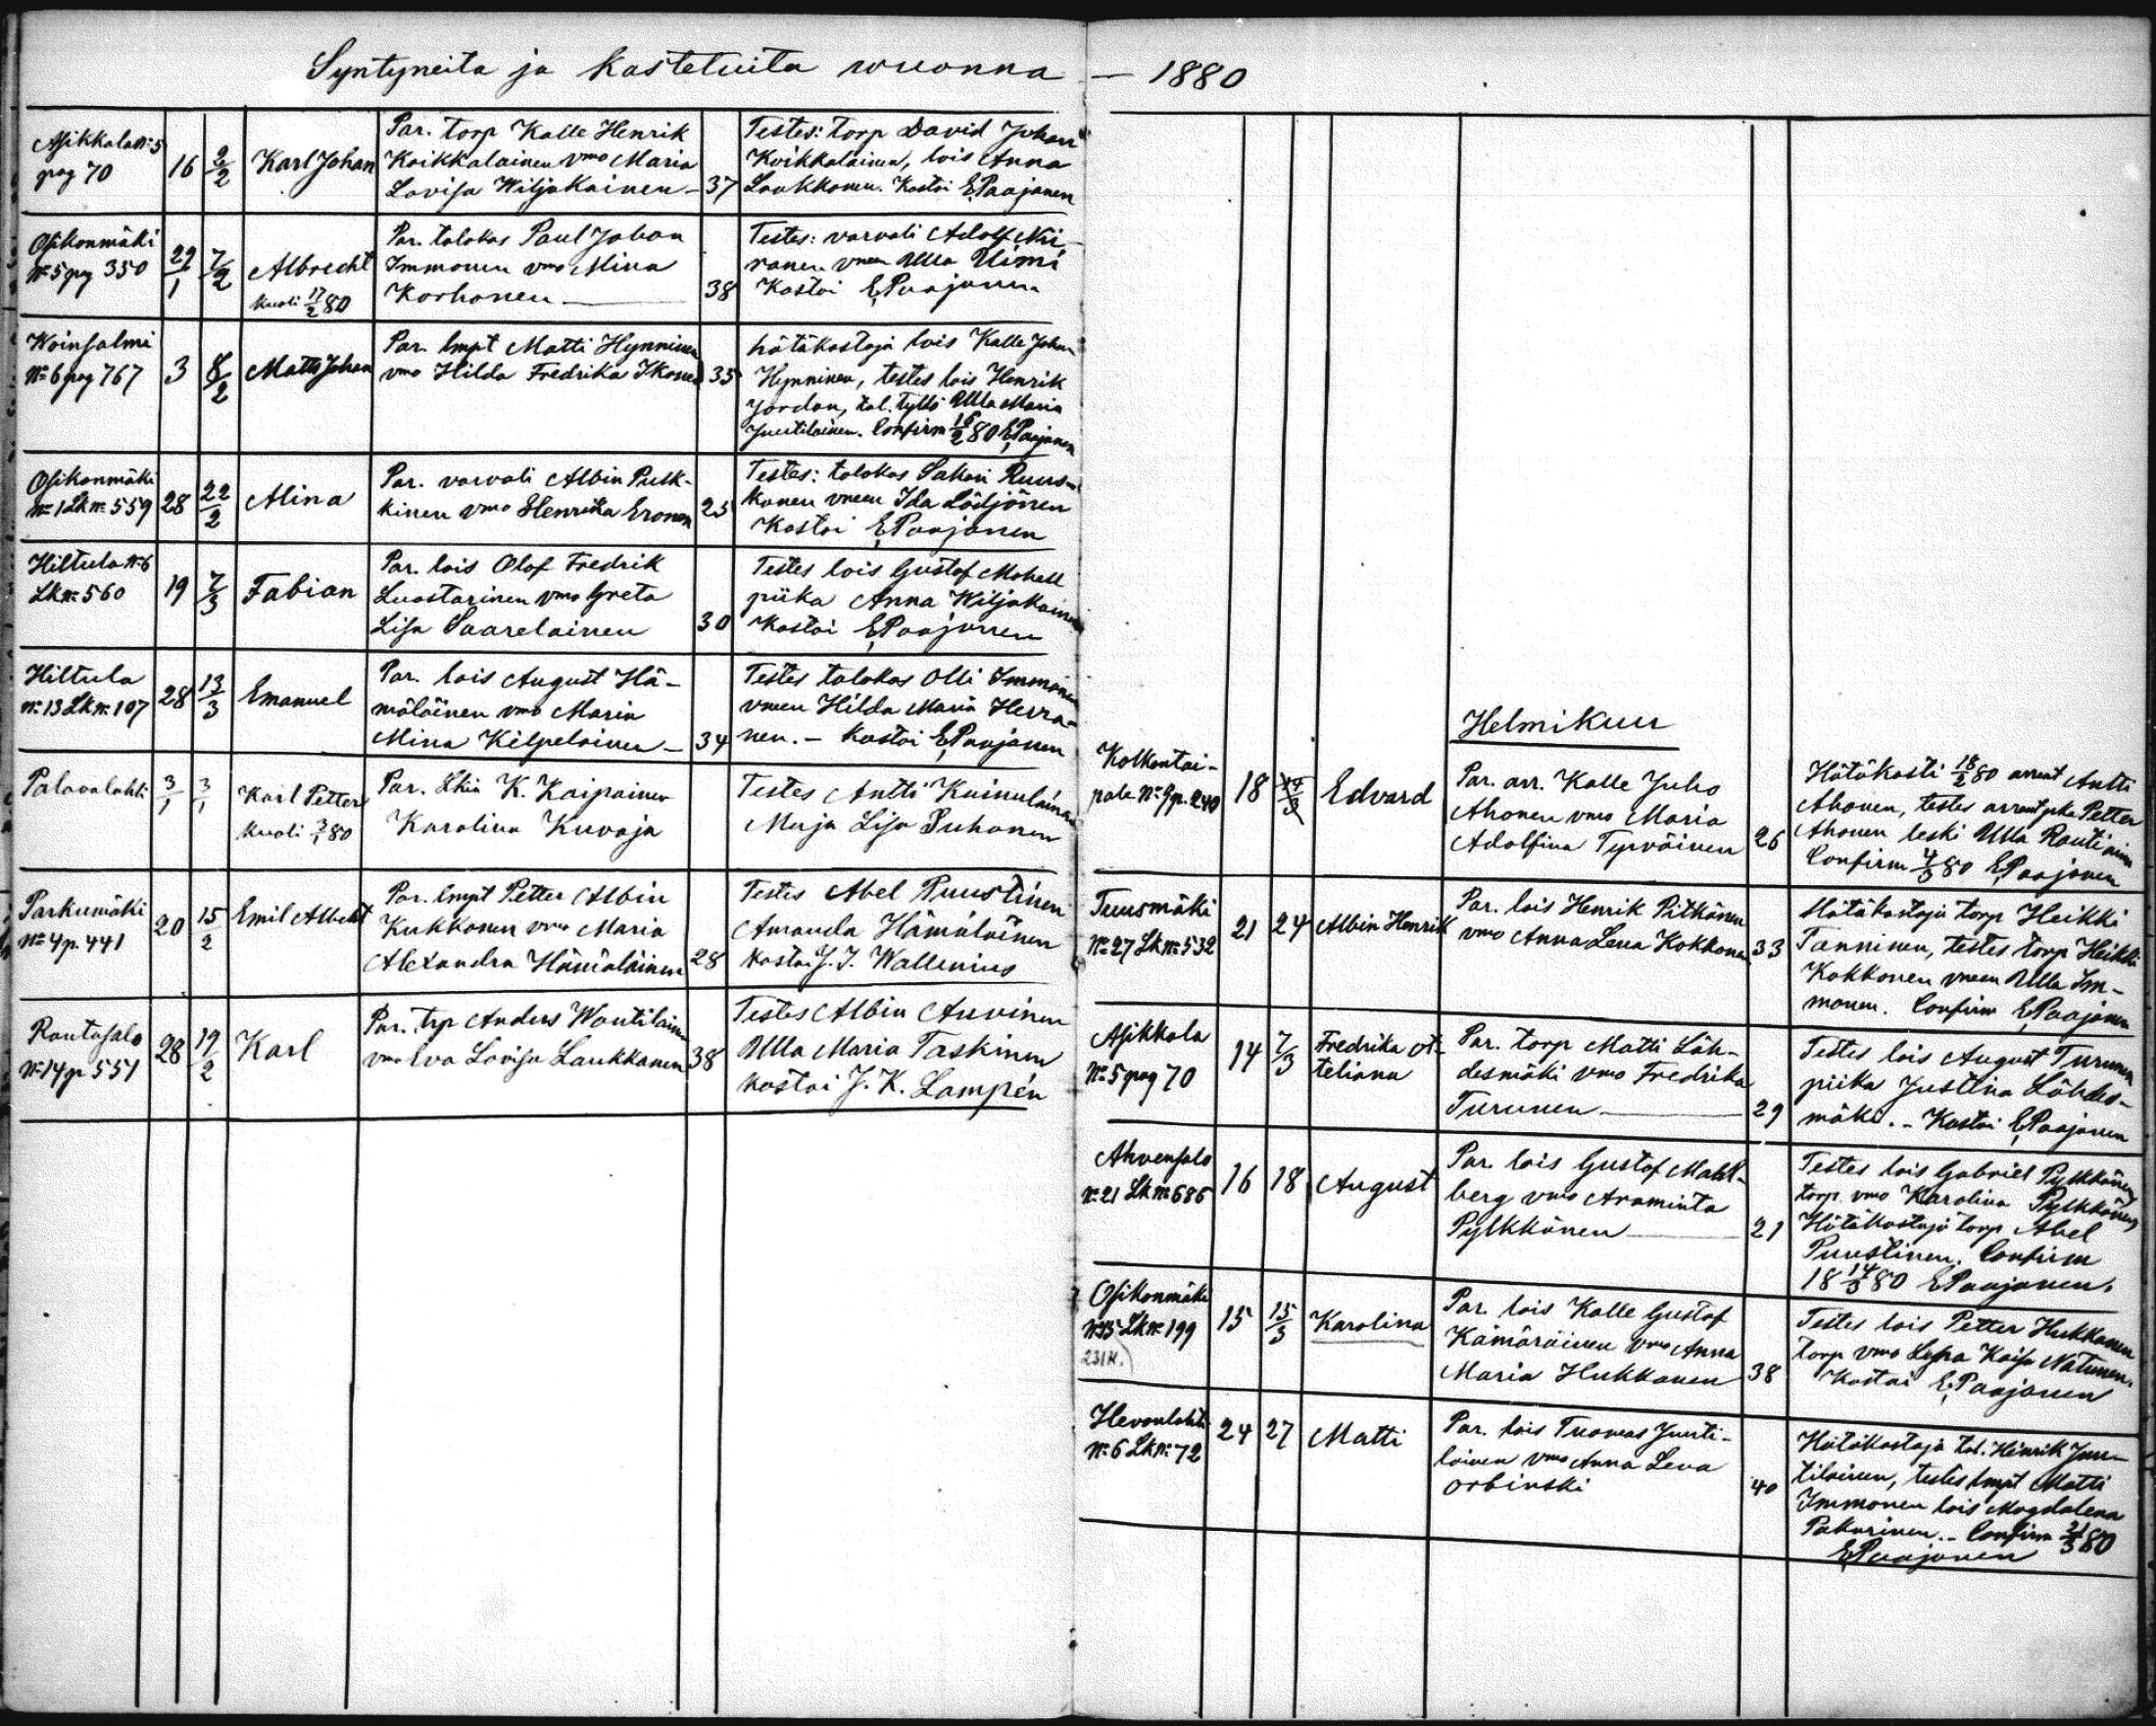 Syntyneitä ja kastetuita wuonna — 1880
Asikkala No 5
pag 70
16
2/2
Karl Johan
Par. torp Kalle Henrik
Koikkalainen vmo Maria
Lovisa Wiljakainen —
37
Testes: torp David Johan
Koikkalainen, lois Anna
Laukkanen. Kastoi E. Paajanen
Osikonmäki
No 5 pag 350
29/1
7/2
Albrecht
kuoli 17/2 80
Par. talokas Paul Johan
Immonen vmo Mina
Korhonen —
38
Testes: varvali Adolf Nii-
ranen vmen Ulla Uimi
Kastoi E. Paajanen
Woinsalmi
No 6 pag 767
3
8/2
Matts Johan
Par. lmpt Matti Hynninen
vmo Hilda Fredrika Ikonen
35
hätäkastaja lois Kalle Johan
Hynninen, testes lois Henrik
Jordan, tal. tyttö Ulla Maria
Juutilainen. Confirm 16/2 80 E. Paajanen
Osikonmäki
No 1 Lk No 559
28
22/2
Alina
Par. varvali Albin Pulk-
kinen vmo Henrika Eronen
25
Testes: talokas Sakari Ruus-
kanen vmen Ida Lödjönen
Kastoi E. Paajanen
Hiltula No 6
Lk No 560
19
7/3
Fabian
Par. lois Olof Fredrik
Luostarinen vmo Greta
Lisa Saarelainen
30
Testes lois Gustof Mohell
piika Anna Wiljakainen
Kastoi E. Paajanen
Hiltula
No 13 Lk No 107
28
13/3
Emanuel
Par. lois August Hä-
mäläinen vmo Maria
Mina Kilpeläinen —
34
Testes talokas Olli Immonen
vmen Hilda Maria Herra-
nen. — Kastoi E. Paajanen
Palavalahti
3/1
3/1
Karl Petter
kuoli 3/1 80
Par. Lkin K. Kaipainen
Karolina Kuvaja
Testes Antti Kainulainen
Maja Lisa Puhonen
Parkumäki
No 4 p. 441
20
15/2
Emil Albert
Par. lmpt Petter Albin
Kukkonen vmo Maria
Alexandra Hämäläinen
28
Testes Abel Puustinen
Amanda Hämäläinen
kastoi J. J. Wallenius
Rantasalo
No 14 p 551
28
19/2
Karl
Par. trp Anders Woutilainen
vmo Eva Lovisa Laukkanen
38
Testes Albin Auvinen
Ulla Maria Taskinen
kastoi J. K. Lampén
Helmikuu
Kolkontai-
pale No 9 p. 240
18
14/3
Edvard
Par. arr. Kalle Juho
Ahonen vmo Maria
Adolfina Tyrväinen
26
Hätäkasti 18/2 80 arrent Antti
Ahonen, testes arrent pka Petter
Ahonen leski Ulla Rautiainen
Confirm 4/3 80 E. Paajanen
Tuusmäki
No 27 Lk No 532
21
24
Albin Henrik
Par. lois Henrik Pitkänen
vmo Anna Lena Kokkonen
33
Hätäkastaja torp Heikki
Tanninen, testes torp Heikki
Kokkonen vmen Ulla Im-
monen. Confirm E. Paajanen
Asikkala
No 5 pag 70
14
7/3
Fredrika A-
teliana
Par. torp Matti Läh-
desmäki vmo Fredrika
Turunen —
29
Testes lois August Turunen
piika Justina Lähdes-
mäki. — Kastoi E. Paajanen
Ahvensalo
No 21 Lk No 686
16
18
August
Par. lois Gustof Mahl-
berg vmo Araminta
Pylkkänen —
21
Testes lois Gabriel Pylkkänen
torp. vmo Karolina Pylkkänen
Hätäkastaja torp Abel
Puustinen. Confirm
18 14/3 80 E. Paajanen.
Osikonmäki
No 15 Lk No 199
231K.
15
15/3
Karolina
Par. lois Kalle Gustof
Kämäräinen vmo Anna
Maria Hukkanen
38
Testes lois Petter Hukkanen
torp vmo Lena Kaisa Natunen.
Kastoi E. Paajanen
Hevonlahti
No 6 Lk No 72
24
27
Matti
Par. lois Tuomas Juuti-
lainen vmo Anna Lena
Orbinski
40
Hätäkastaja tal. Henrik Juu-
tilainen, testes lmpt Matti
Immonen lois Magdalena
Pakarinen. — Confirm 21/3 80
E. Paajanen